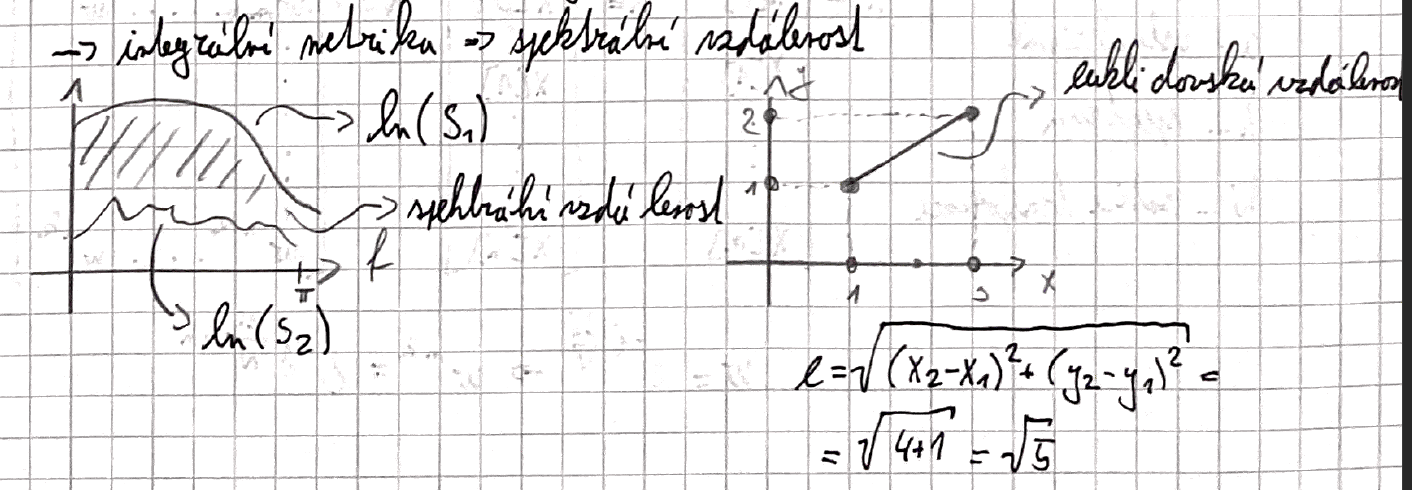 → integrální metrika => spektrální vzdálenost
ln(S₁)
spektrální vzdálenost
f
π
ln(S₂)
y
euklidovská vzdálenos
2
1
1
3
x
e=√((x₂-x₁)²+(y₂-y₁)²) =
= √(4+1) = √5